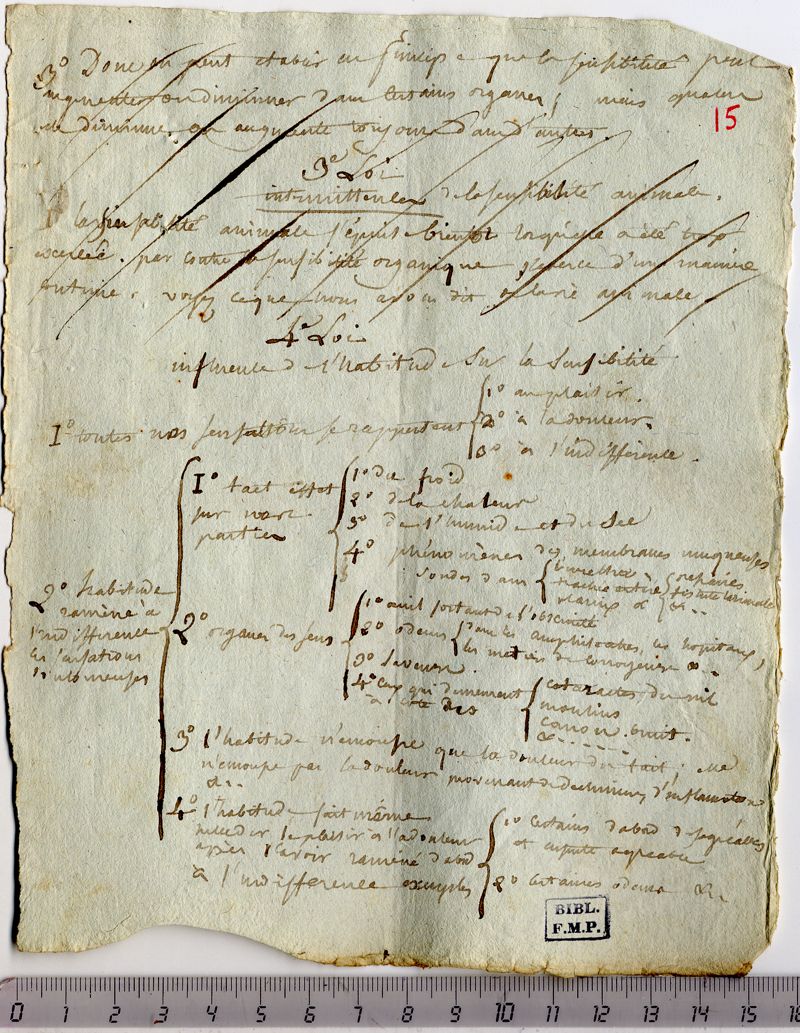 3º Donc on peut etablir en principe que la sensibilité peut
augmenter ou diminuer dans certains organes, mais quand
elle diminue ou augmente toujours dans d'autres.
15
3e Loi
intermittence de la sensibilité animale.
1º la sensibilité animale s'épuise bientot lorsqu'elle a été trop
excercée. par contre la sensibilité organique s'exerce d'une maniere
continue. voyez ce que nous avons dit animale.
4e Loi
influence de l'habitude sur la sensibilité
1º toutes nos sensations se rapportent
1º au plaisir.
2º à la douleur.
3º à l'indifférence.
2º habitude
ramène à
l'indifférence
les sensations
1º tact effet
sur nos
parties
1º du froid
2º de la chaleur
3º de l'humide et du sec
4º phénomènes des membranes muqueuses
sondes dans
2º organes des sens
1º œil sortant de l'obscurité
2º odeurs dans les amphitheatres, les hopitaux,
les metiers de &..
3º saveurs
4º ceux qui demeurent
à coté des
cataractes du nil
moulins
canon. bruit.
&......
3º l'habitude n'emousse que la douleur du tact; elle
n'emousse pas la douleur provenant de dechirures, d'inflammation
&..
4º l'habitude fait même
succeder le plaisir à la douleur
après l'avoir ramené d'abord
à l'indifference exemples
1º certains d'abord desagreables
et ensuite agreable
2º certaines odeurs &..
BIBL.
F.M.P.
0 1 2 3 4 5 6 7 8 9 10 11 12 13 14 15 16